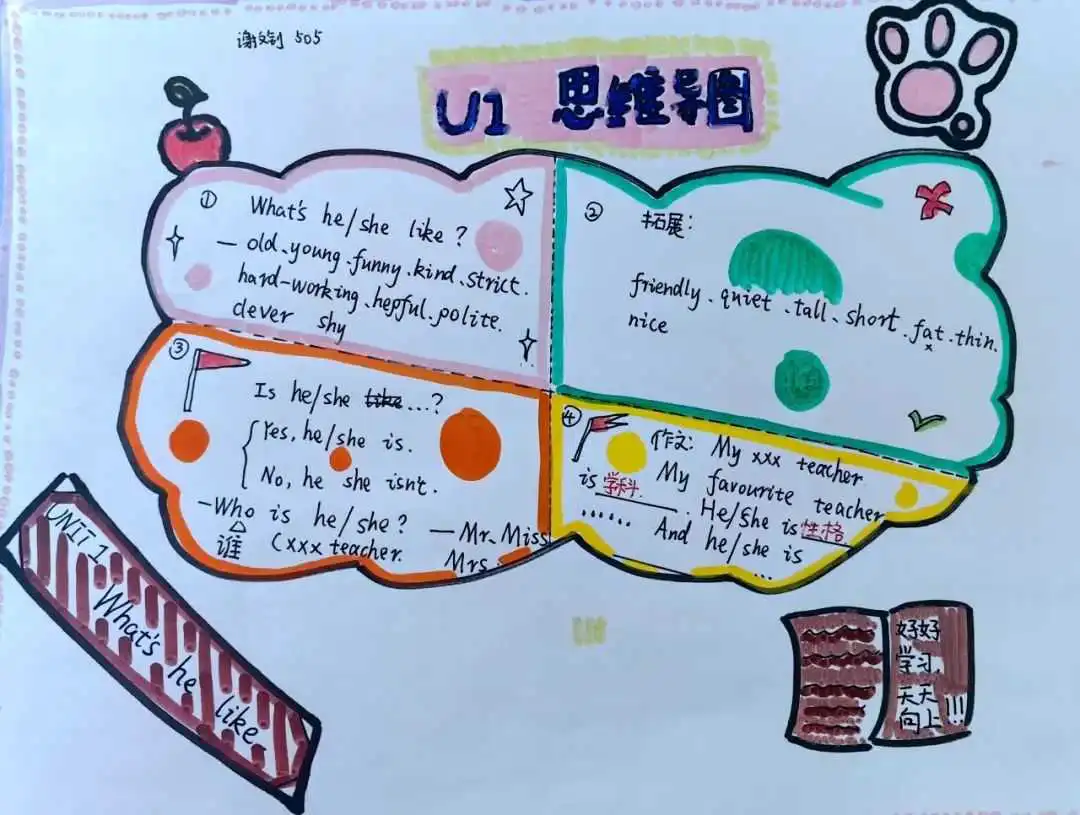 谢文钊 505
U1 思维导图
① What's he/she like?
— old、young、funny、kind、strict.
hard-working、hepful、polite.
clever shy
② 拓展:
friendly、quiet、tall、short、fat、thin.
nice
③ Is he/she like...?
Yes, he/she is.
No, he she isn't.
—Who is he/she? —Mr、Miss
谁 (xxx teacher. Mrs.
④ 作文: My xxx teacher
My favourite teacher
is 学科. He/She is 性格
...... And he/she is
...
UNIT 1 What's he like.
好好
学习,
天天
向上!!!